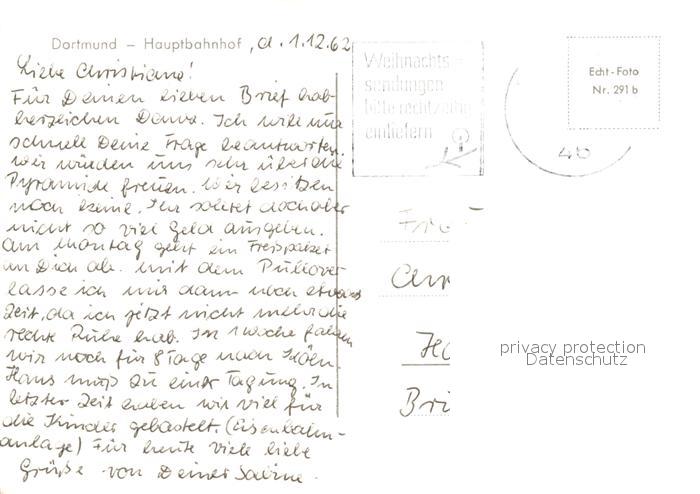 Dortmund – Hauptbahnhof , d. 1.12.62
Liebe Christiane!
Für Deinen lieben Brief hab
herzlichen Dank. Ich will nur
schnell Deine Frage beantworten.
Wir würden uns sehr über die
Pyramide freuen. Wir besitzen
noch keine. Ihr solltet doch aber
nicht so viel Geld ausgeben.
Am Montag geht ein Fresspaket
an Dich ab. Mit dem Pullover
lasse ich mir dann noch etwas
Zeit, da ich jetzt nicht mehr die
rechte Ruhe hab. In 1 Woche fahren
wir noch für 8 Tage nach Köln.
Hans muß zu einer Tagung. In
letzter Zeit haben wir viel für
die Kinder gebastelt. (Eisenbahn-
anlage) Für heute viele liebe
Grüße von Deiner Sabine.
Weihnachts-
sendungen
bitte rechtzeitig
einliefern
Echt-Foto
Nr. 291 b
4b
Fra
Chr
Ha
Bri
privacy protection
Datenschutz